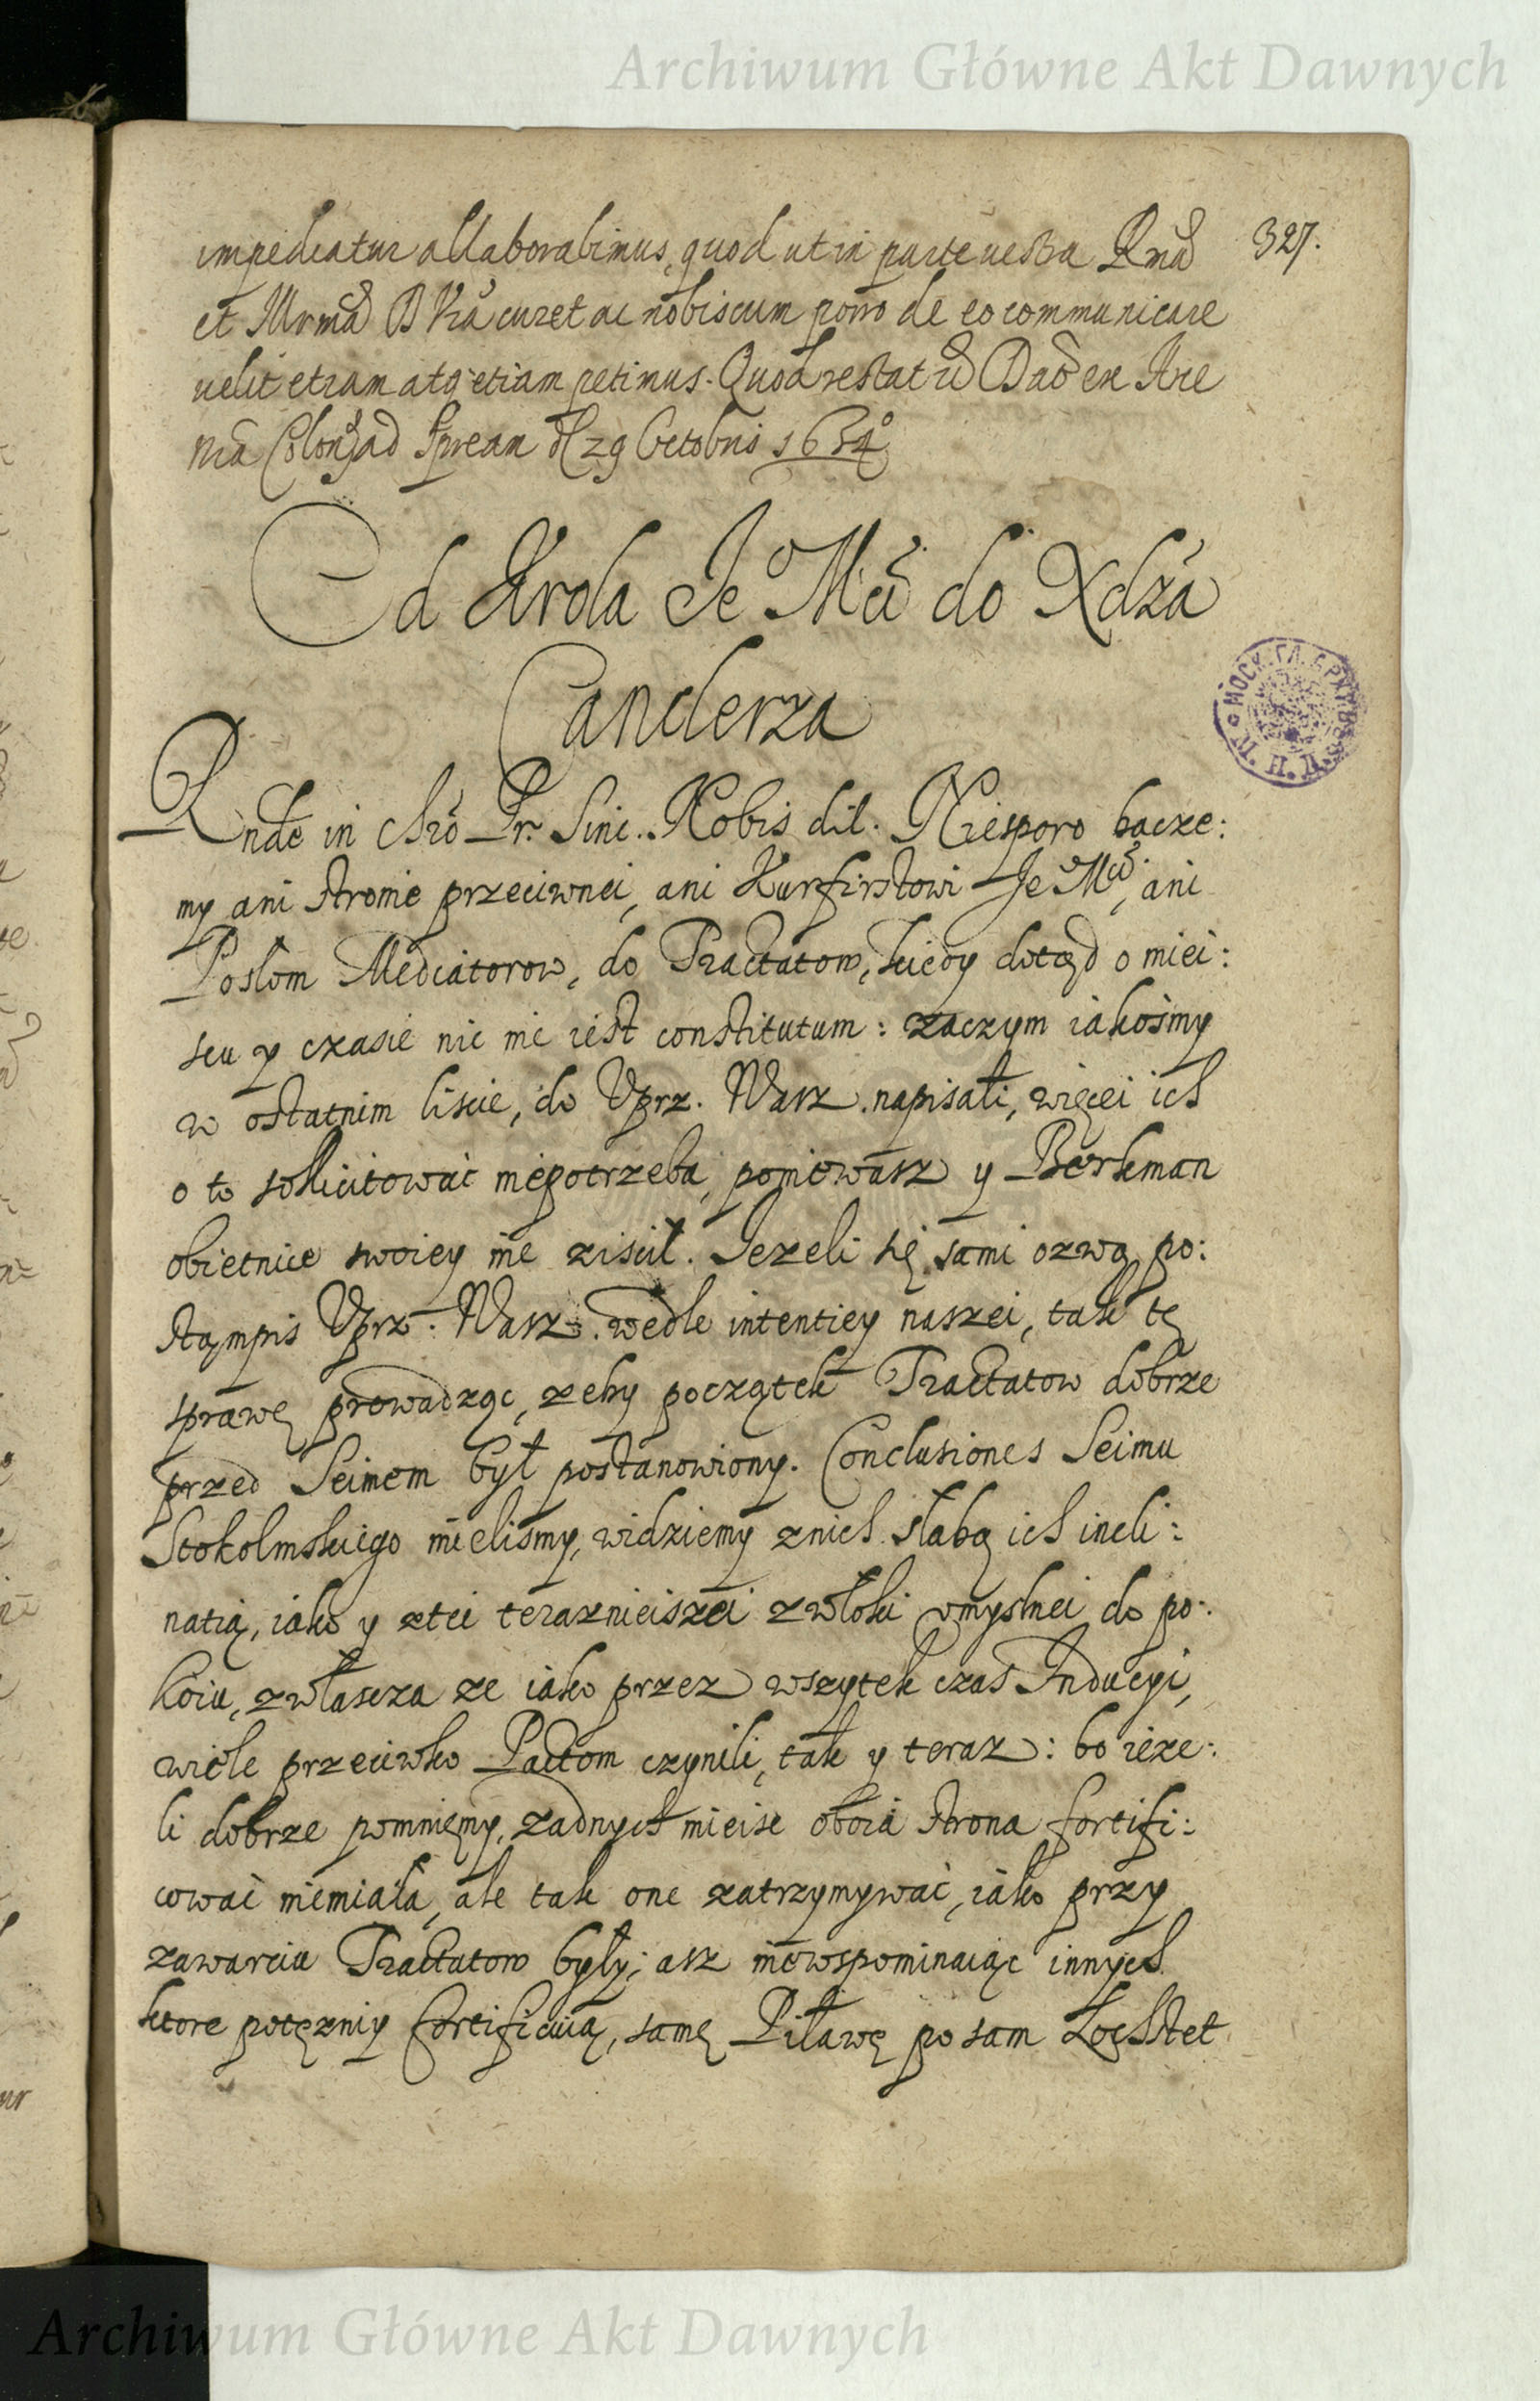 Archiwum Główne Akt Dawnych
327.
impediatur allaborabimus, quod ut in parte vestra Rnd
et Illrma D Vra curet ac nobiscum porro de eo communicare
velit etiam atq etiam petimus. Quod restat Dat ex Are
Colon ad Spream d 29 Octobris 1634
Od Krola Je Mci do Xdza
Canclerza
Rnde in Chro Pr. Sinc. Nobis dil. Niesporo bacze:
my ani stronie przeciwnei, ani Kurfirstowi Je Mci, ani
Posłom Mediatorow, do Tractatow, kiedy dotąd o miei:
scu y czasie nic nie iest constitutum: zaczym iakosmy
w ostatnim liscie, do Uprz. Wasz. napisali, więcei ich
o to sollicitować niepotrzeba, poniewasz y Berkman
obietnice swoiey nie ziscił. Jezeli się sami ozwą po:
stąmpis Uprz. Wasz. wedle intentiey naszei, tak tę
sprawę prowadząc, zeby początek Tractatow dobrze
przed Seimem był postanowiony. Conclusiones Seimu
Stokolmskiego mielismy, widziemy znich słabą ich incli:
natią, iako y ztei teraznieiszei zwłoki umyslnei do po:
koiu, zwłascza ze iako przez wszytek czas Inducyi,
wiele przeciwko Pactom czynili, tak y teraz: bo ieze:
li dobrze pomnięmy, zadnych mieisc oboia strona fortifi:
cować niemiała, ale tak one zatrzymywać, iako przy
zawarciu Tractatow były; asz niewspominaiąc innych
ktore potęzniy fortificuią, samę Piławę po sam Lochstet
Archiwum Główne Akt Dawnych